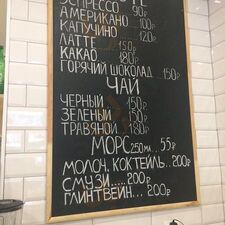 ЭСПРЕССО 90₽
АМЕРИКАНО 100₽
КАПУЧИНО 120₽
ЛАТТЕ ..... 150₽
КАКАО ..... 180₽
ГОРЯЧИЙ ШОКОЛАД ...150₽
ЧАЙ
ЧЕРНЫЙ 150₽
ЗЕЛЕНЫЙ 150₽
ТРАВЯНОЙ 180₽
МОРС 250мл ... 55₽
МОЛОЧ. КОКТЕЙЛЬ..200₽
СМУЗИ ..... 200₽
ГЛИНТВЕЙН ... 200₽